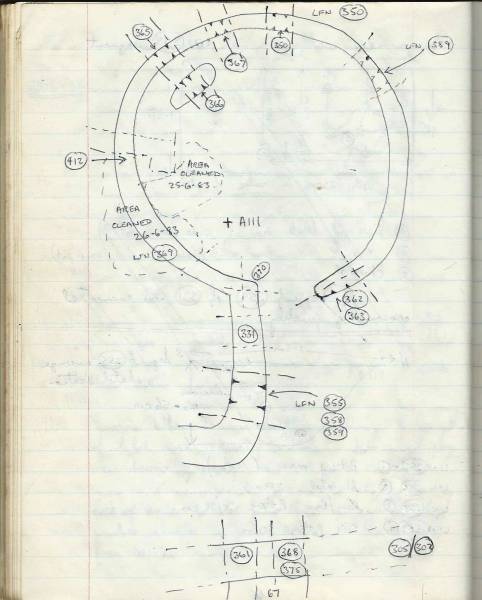 365
367
350
LFN 350
LFN 389
366
412
AREA
CLEANED
25-6-83
AREA
CLEANED
26-6-83
LFN 369
+ A111
310
362
363
331
LFN 355
358
359
361
368
375
305/302
67